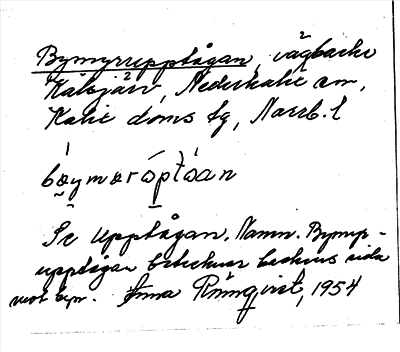 Bymyrupptågan, vägbacke
Kälvjärv, Nederkalix sn,
Kalix doms. tg, Norrb. l
bøymɷrɷptåan
Se Upptågan. Namn. Bymyr-
upptågan betecknar backens sida
mot byn. Anna Rönnqvist, 1954